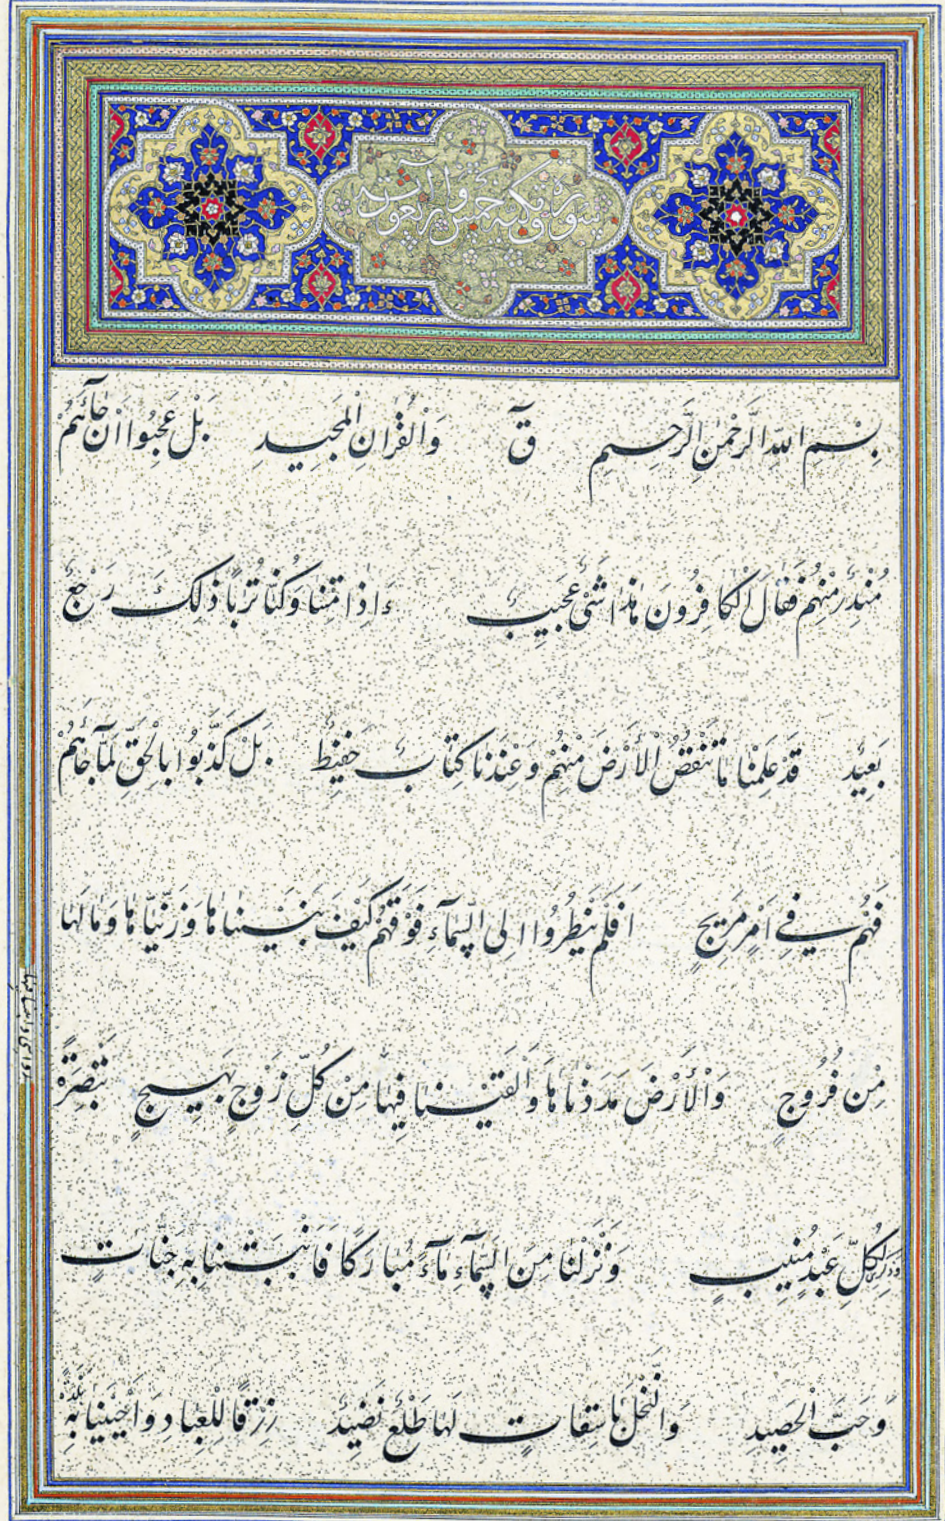 سورة ق مكية خمس واربعون آية
بِسْمِ اللهِ الرَّحْمٰنِ الرَّحِيمِ قٓ وَالْقُرْاٰنِ الْمَجِيدِ بَلْ عَجِبُوا اَنْ جَآئَهُمْ
مُنْذِرٌ مِنْهُمْ فَقَالَ الْكَافِرُونَ هٰذَا شَيْءٌ عَجِيبٌ ءَاِذَا مِتْنَا وَكُنَّا تُرَابًا ذٰلِكَ رَجْعٌ
بَعِيدٌ قَدْ عَلِمْنَا مَا تَنْقُصُ الْاَرْضُ مِنْهُمْ وَعِنْدَنَا كِتَابٌ حَفِيظٌ بَلْ كَذَّبُوا بِالْحَقِّ لَمَّا جَائَهُمْ
فَهُمْ فِي اَمْرٍ مَرِيجٍ اَفَلَمْ يَنْظُرُوا اِلَى السَّمَآءِ فَوْقَهُمْ كَيْفَ بَنَيْنَاهَا وَزَيَّنَّاهَا وَمَا لَهَا
مِنْ فُرُوجٍ وَالْاَرْضَ مَدَدْنَاهَا وَاَلْقَيْنَا فِيهَا مِنْ كُلِّ زَوْجٍ بَهِيجٍ تَبْصِرَةً
رواسي وانبتنا فيها
لِكُلِّ عَبْدٍ مُنِيبٍ وَنَزَّلْنَا مِنَ السَّمَآءِ مَآءً مُبَارَكًا فَاَنْبَتْنَا بِهِ جَنَّاتٍ
وَحَبَّ الْحَصِيدِ وَالنَّخْلَ بَاسِقَاتٍ لَهَا طَلْعٌ نَضِيدٌ رِزْقًا لِلْعِبَادِ وَاَحْيَيْنَا بِهِ